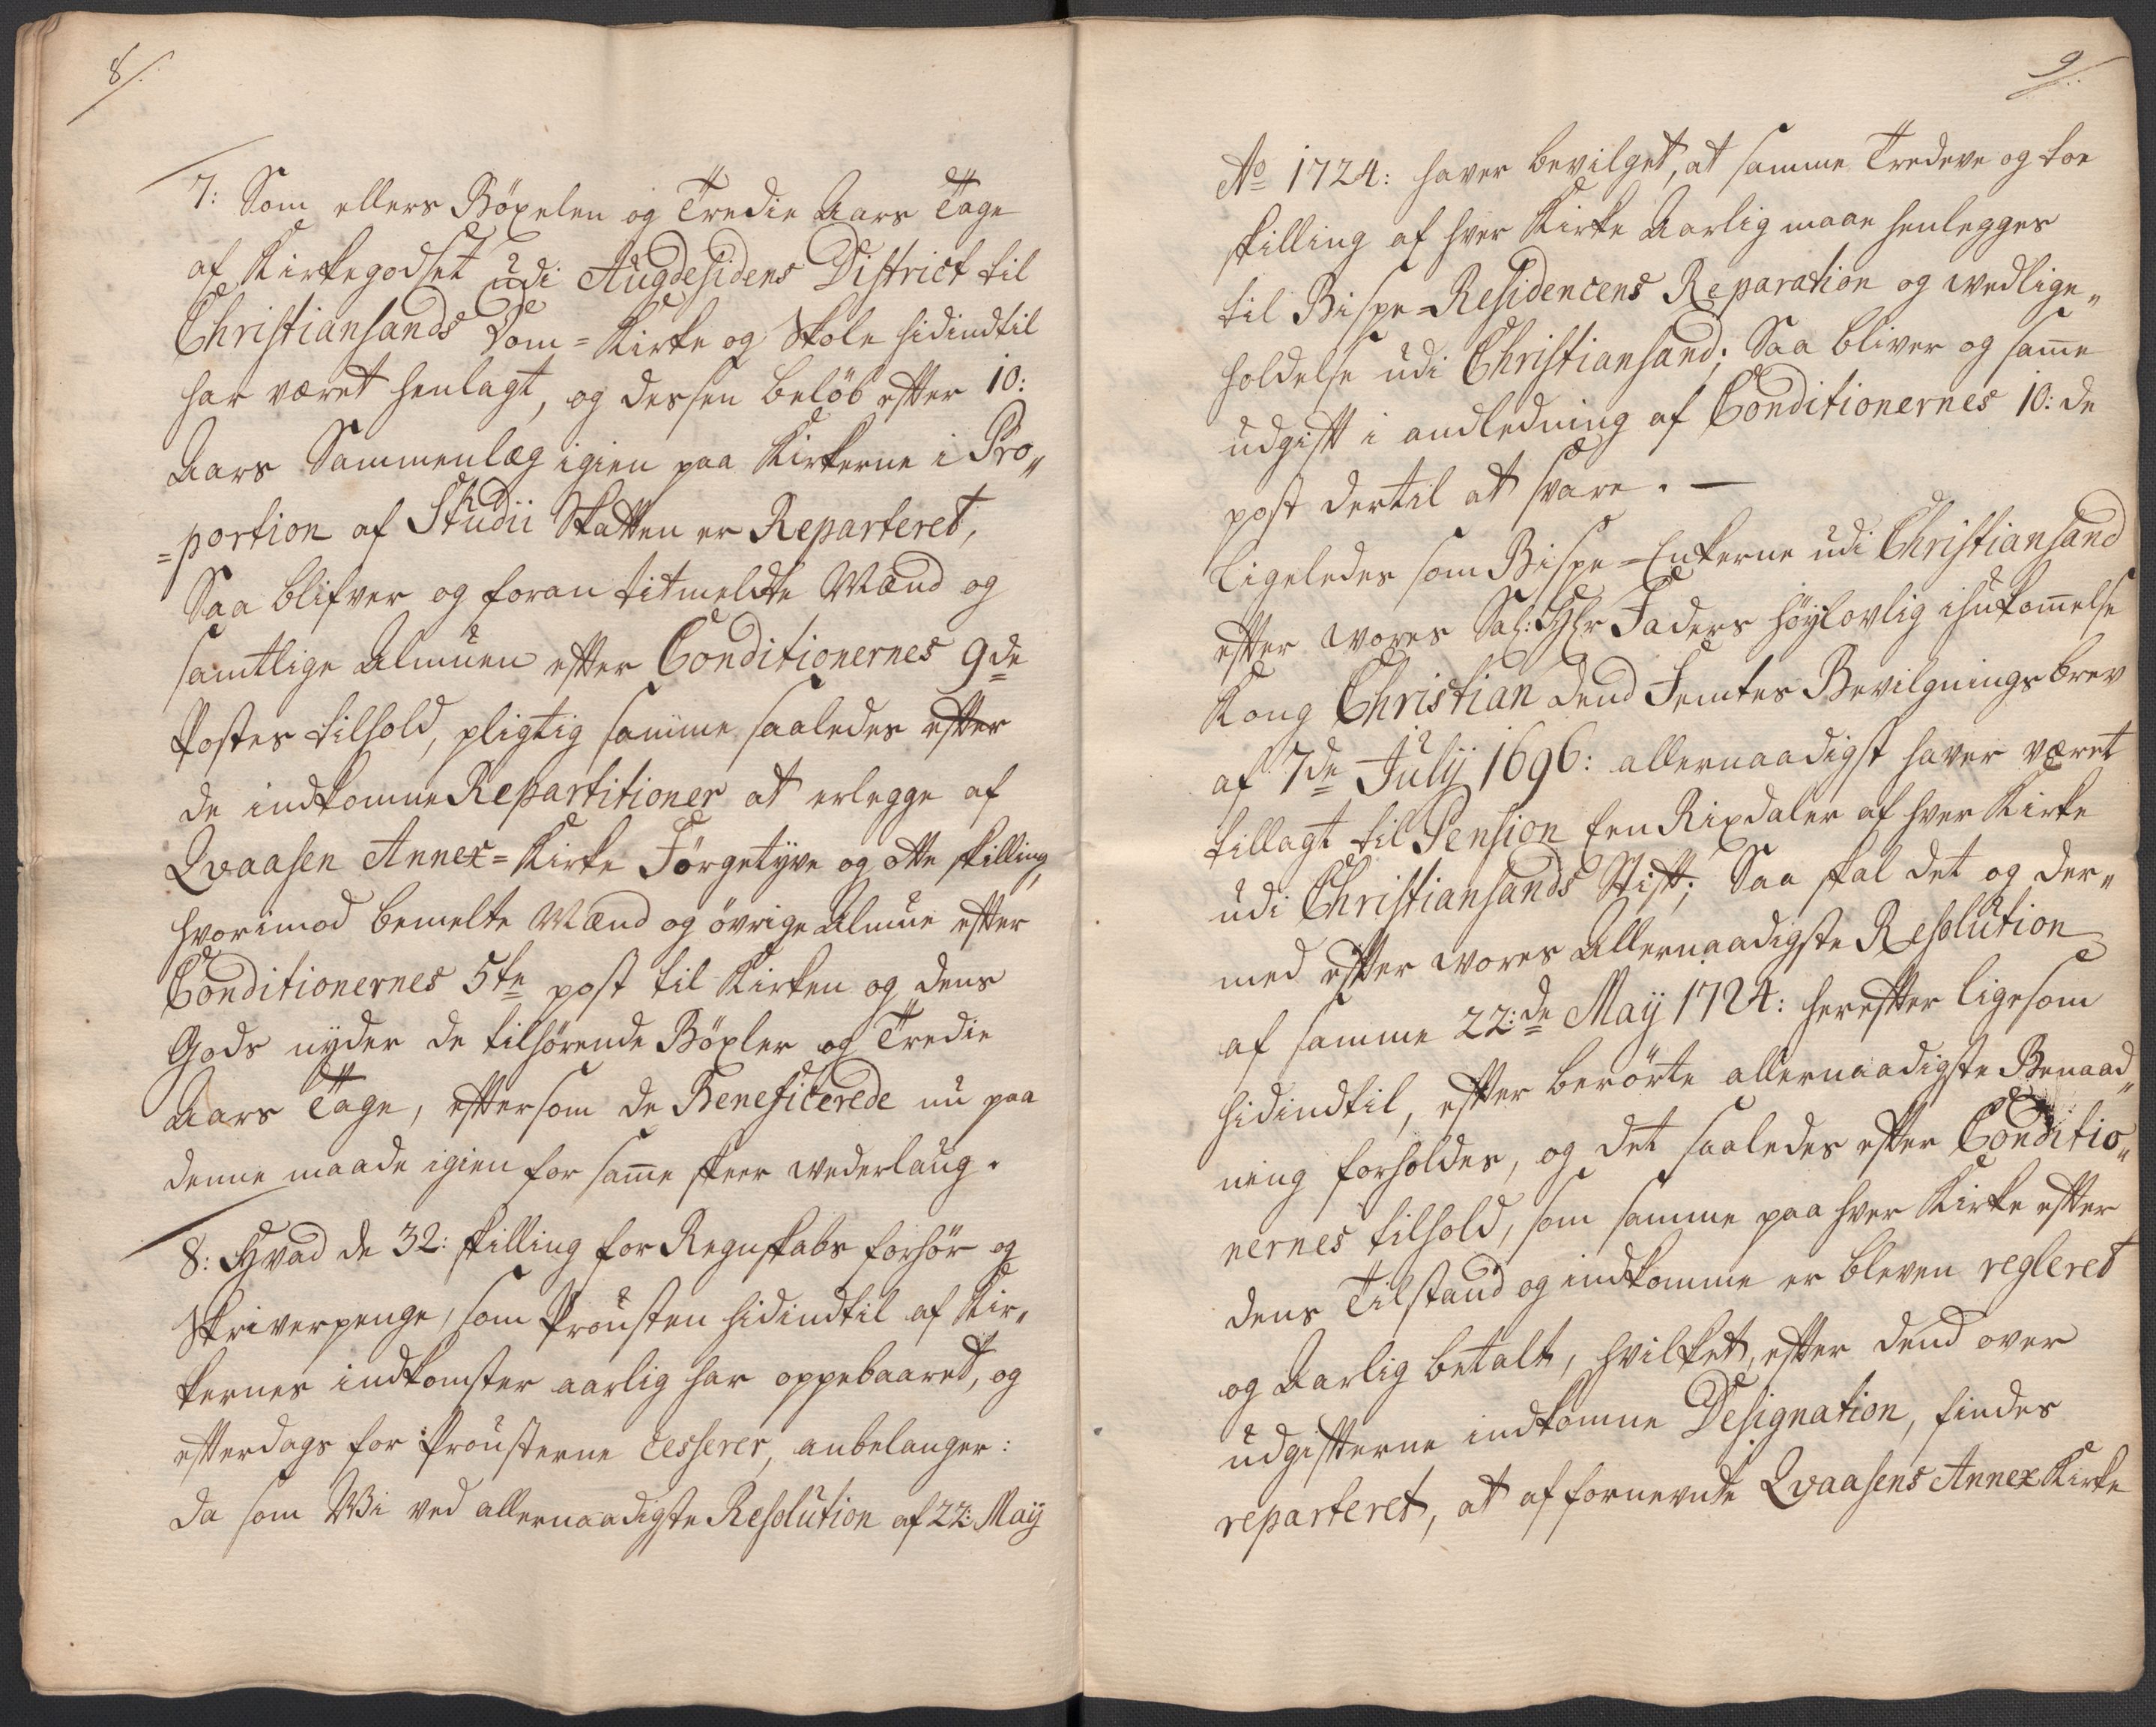 8/.
7: Som ellers Böxelen og Tredie Aars Tage
af Kirkegodset udi Augdesidens District til
Christiansands Dom=Kirke og Skole hidindtil
har været henlagt, og dessen beløb efter 10:
Aars Sammenlæg igien paa Kirkerne i Pro„
=portion af Studii Skatten er Reparteret,
Saa blifver og foran titmeldte Mænd og
samtlige Almuen efter Conditionernes 9de
Postes tilhold, pligtig samme saaledes efter
de indkomne Repartitioner at erlegge af
Qvaasen Annex=Kirke Förgetyve og otte skilling,
hvorimod bemelte Mænd og övrige Almue efter
Conditionernes 5te post til Kirken og dens
Gods nyder de tilhörende Böxler og Tredie
Aars Tage, eftersom de Beneficerede nu paa
denne maade igien for same skeer wederlaug.
8: Hvad de 32: skilling for Regnskabs forhör og
Skriverpenge, som Prousten hidindtil af Kir„
kernes indkomster aarlig har oppebaaret, og
efterdags for Prousterne cesserer, anbelanger:
da som Wi ved allernaadigste Resolution af 22: Maij
9/.
Ao 1724: haver bevilget, at samme Tredeve og toe
skilling af hver Kirke Aarlig maae henlegges
til Bispe=Residencens Reparation og wedlige„
holdelse udi Christiansand; Saa bliver og same
udgift i andledning af Conditionernes 10: de
post dertil at svare. —
Ligeledes som Bispe=Enkerne udi Christiansand
efter wores Sal: Hr Faders höylovlig ihukomelse
Kong Christian dend Femtes Bevilgningsbrev
af 7de Julij 1696: allernaadigst haver været
tillagt til Pension Een Rixdaler af hver Kirke
udi Christiansands Stift; Saa skal det og der„
med efter wores Allernaadigste Resolution
af samme 22:de Maij 1724: herefter ligesom
hidindtil, efter berörte allernaadigste Benaad„
ning forholdes, og det saaledes efter Conditio„
nernes tilhold, som samme paa hver Kirke efter
dens Tilstand og indkomme er bleven regleret
og Aarlig betalt, hvilket, efter dend over
udgifterne indkomne Designation, findes
reparteret, at af fornevnte Qvaasens Annex Kirke